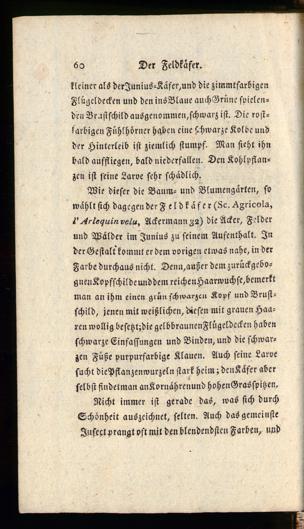 60 Der Feldkäfer.
kleiner als der Junius-Käfer, und die zimmtfarbigen
Flügeldecken und den ins Blaue auch Grüne spielen-
den Brustschild ausgenommen, schwarz ist. Die rost-
farbigen Fühlhörner haben eine schwarze Kolbe und
der Hinterleib ist ziemlich stumpf. Man sieht ihn
bald auffliegen, bald niederfallen. Den Kohlpflan-
zen ist seine Larve sehr schädlich.
Wie dieser die Baum- und Blumengärten, so
wählt sich dagegen der Feldkäfer (Sc. Agricola,
l'Arlequin velu, Ackermann 32) die Acker, Felder
und Wälder im Junius zu seinem Aufenthalt. In
der Gestalt kommt er dem vorigen etwas nahe, in der
Farbe durchaus nicht. Denn, außer dem zurückgebo-
genen Kopfschilde und dem reichen Haarwuchse, bemerkt
man an ihm einen grün schwarzen Kopf und Brust-
schild, jenen mit weißlichen, diesen mit grauen Haa-
ren wollig besetzt; die gelbbraunen Flügeldecken haben
schwarze Einfassungen und Binden, und die schwar-
zen Füße purpurfarbige Klauen. Auch seine Larve
sucht die Pflanzenwurzeln stark heim; den Käfer aber
selbst findet man an Kornähren und hohen Grasspitzen.
Nicht immer ist gerade das, was sich durch
Schönheit auszeichnet, selten. Auch das gemeinste
Insect prangt oft mit den blendendsten Farben, und